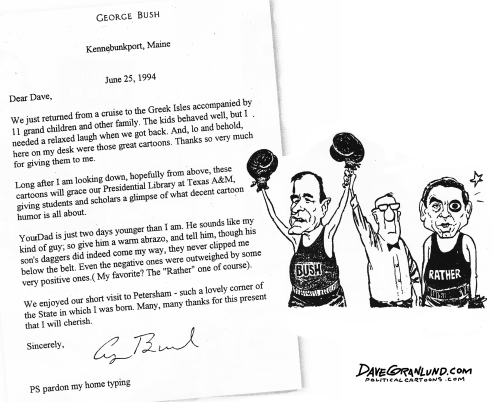 GEORGE BUSH
Kennebunkport, Maine
June 25, 1994
Dear Dave,
We just returned from a cruise to the Greek Isles accompanied by
11 grand children and other family. The kids behaved well, but I
needed a relaxed laugh when we got back. And, lo and behold,
here on my desk were those great cartoons. Thanks so very much
for giving them to me.
Long after I am looking down, hopefully from above, these
cartoons will grace our Presidential Library at Texas A&M,
giving students and scholars a glimpse of what decent cartoon
humor is all about.
YourDad is just two days younger than I am. He sounds like my
kind of guy; so give him a warm abrazo, and tell him, though his
son's daggers did indeed come my way, they never clipped me
below the belt. Even the negative ones were outweighed by some
very positive ones.( My favorite? The "Rather" one of course).
We enjoyed our short visit to Petersham - such a lovely corner of
the State in which I was born. Many, many thanks for this present
that I will cherish.
Sincerely,
G Bush
PS pardon my home typing
BUSH
RATHER
DAVEGRANLUND.COM
POLITICALCARTOONS.COM